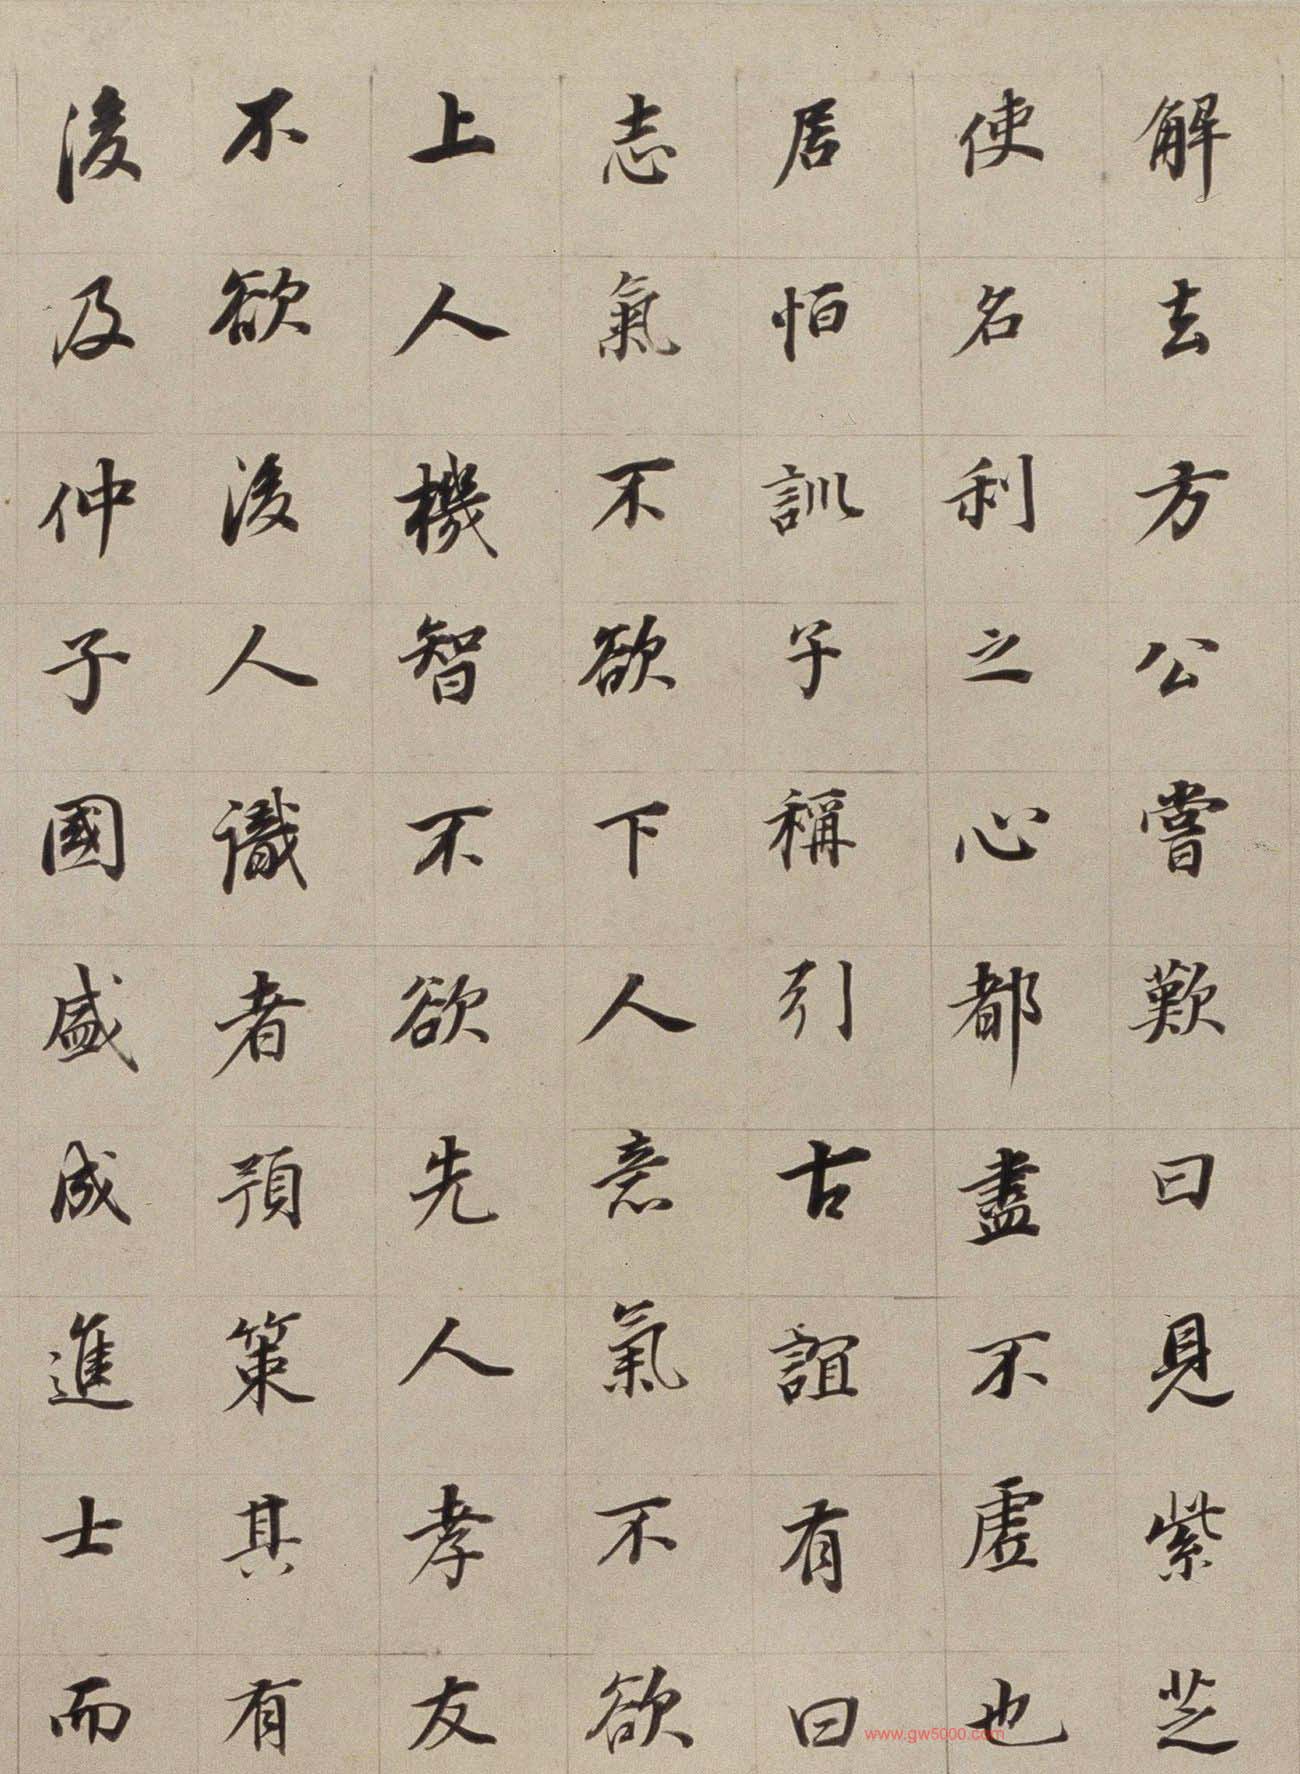 解去方公嘗歎曰見紫芝
使名利之心都盡不虛也
居恒訓子稱引古誼有曰
志氣不欲下人意氣不欲
上人機智不欲先人孝友
不欲後人識者預策其有
後及仲子國盛成進士而
www.gw5000.com